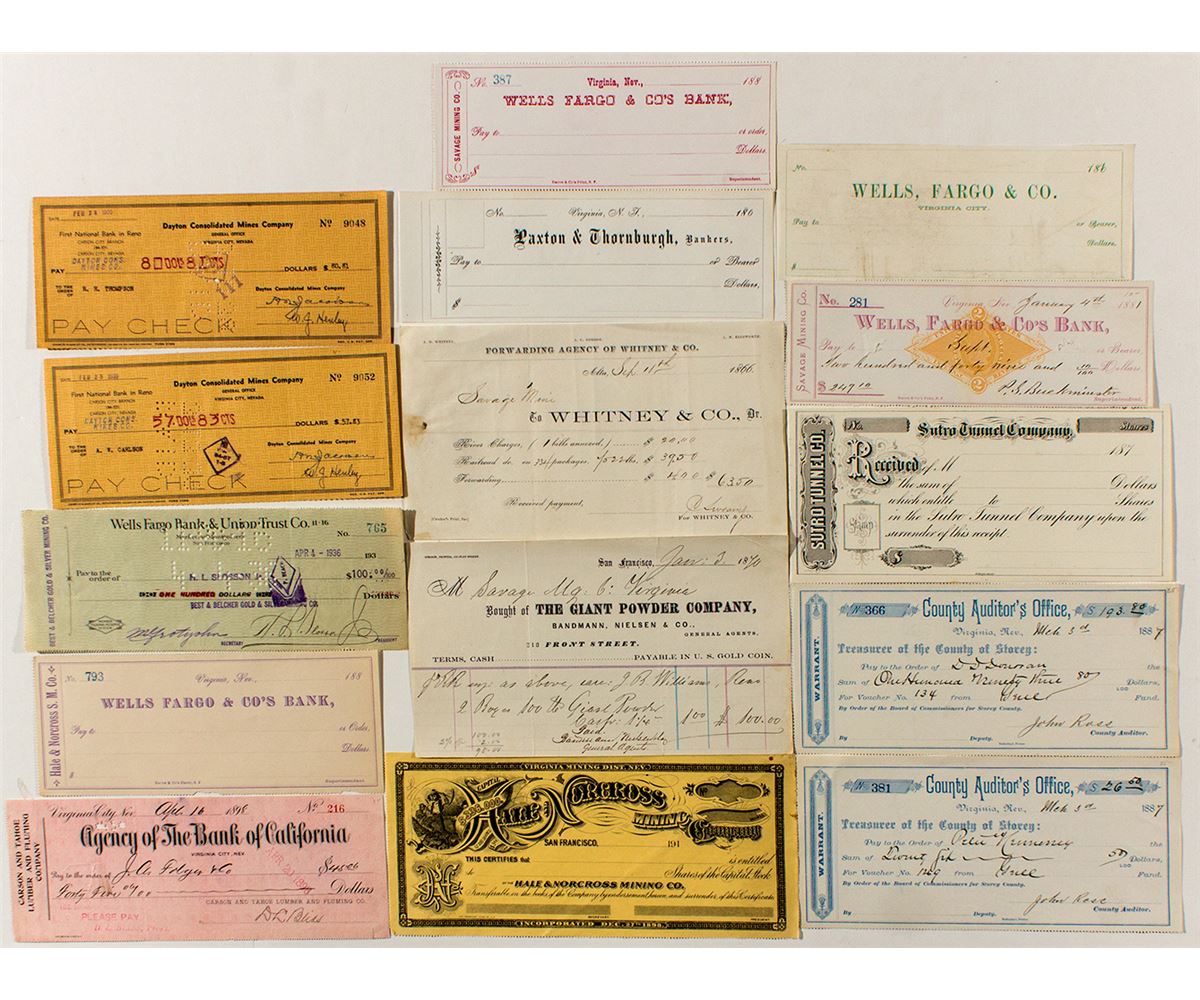 No. 387 Virginia, Nev., 188
SAVAGE MINING CO.
WELLS FARGO & CO'S BANK,
Pay to or order,
Dollars.
$
Superintendent.
No. 186
WELLS, FARGO & CO.
VIRGINIA CITY.
Pay to or Bearer,
Dollars.
$
FEB 24
DATE
Dayton Consolidated Mines Company No 9048
GENERAL OFFICE
VIRGINIA CITY, NEVADA
First National Bank in Reno
CARSON CITY BRANCH
CARSON CITY, NEVADA
DAYTON CONS.
MINES CO.
PAY 80 DOL'S 81 CTS DOLLARS $ 80.81
TO THE ORDER OF R. R. THOMPSON
Dayton Consolidated Mines Company
W. J. Henley
PAY CHECK
No. Virginia, N. T., 186
Paxton & Thornburgh, Bankers,
Pay to or Bearer
Dollars,
$
No. 281 Virginia Nev January 4th 1881
SAVAGE MINING CO.
WELLS, FARGO & CO'S BANK,
Pay to Supt. or Bearer
Two hundred and forty nine and 10/100 Dollars
$ 249 10
Superintendent.
DATE
Dayton Consolidated Mines Company No 9052
GENERAL OFFICE
VIRGINIA CITY, NEVADA
First National Bank in Reno
CARSON CITY BRANCH
CARSON CITY, NEVADA
DAYTON CONS.
MINES CO.
PAY 57 DOL'S 83 CTS DOLLARS $ 57.83
TO THE ORDER OF A. V. CARLSON
Dayton Consolidated Mines Company
W. J. Henley
PAY CHECK
FORWARDING AGENCY OF WHITNEY & CO.
Alta, Sep 1866.
Savage Mine
To WHITNEY & CO., Dr.
River Charges, (1 bills annexed) $ 20.00
Railroad do. on packages, lbs. $ 39.50
Forwarding $ 4.00 $ 63.50
Received payment,
For WHITNEY & CO.
SUTRO TUNNEL CO.
No. Sutro Tunnel Company, Shares
187
Received of M
the sum of Dollars
which entitle to Shares
in the Sutro Tunnel Company upon the
surrender of this receipt.
$
BEST & BELCHER GOLD & SILVER MINING CO.
Wells Fargo Bank & Union Trust Co. 11-16
SAN FRANCISCO
No. 765
APR 4 - 1936 193
Pay to the order of H. L. SLOSSON JR $100.00/100
ONE HUNDRED DOLLARS Dollars
BEST & BELCHER GOLD & SILVER MINING CO.
SECRETARY PRESIDENT
San Francisco, Jan. 3 1870
M Savage Mg. Co. Virginia
Bought of THE GIANT POWDER COMPANY,
BANDMANN, NIELSEN & CO.,
GENERAL AGENTS.
210 FRONT STREET.
TERMS, CASH PAYABLE IN U. S. GOLD COIN.
as above, care J. B. Williams, Reno
2 Boxes 100 lb Giant Powder
1.00 $ 100.00
Paid
General Agents
WARRANT.
N 366 County Auditor's Office, $ 193.80
Virginia, Nev. Mch 3d 1887
Treasurer of the County of Storey:
Pay to the Order of D. D. Donovan the
Sum of One Hundred Ninety three 80/100 Dollars,
For Voucher No. 134 from Fund.
By Order of the Board of Commissioners for Storey County.
John Ross
By Deputy. County Auditor.
Hale & Norcross S. M. Co.
No. 793 Virginia, Nev., 188
WELLS FARGO & CO'S BANK,
Pay to or Order,
Dollars
$
VIRGINIA MINING DIST. NEV.
CAPITAL
HALE & NORCROSS
MINING Company
SAN FRANCISCO, 191
THIS CERTIFIES that is entitled
to Shares of the Capital Stock
of the HALE & NORCROSS MINING CO.
Transferable on the books of the Company by endorsement hereon, and surrender of this Certificate
INCORPORATED DEC. 27TH 1898.
WARRANT.
N 381 County Auditor's Office, $ 26 50
Virginia, Nev. Mch 3d 1887
Treasurer of the County of Storey:
Pay to the Order of Peter the
Sum of Twenty six 50 Dollars,
For Voucher No. 129 from Fund.
By Order of the Board of Commissioners for Storey County.
John Ross
By Deputy. County Auditor.
CARSON AND TAHOE LUMBER AND FLUMING COMPANY
Virginia City, Nev. Apl. 16 1898 No 216
Agency of The Bank of California
VIRGINIA CITY, NEV.
Pay to the order of J. A. Folger & Co
Forty Five 00/100 Dollars
CARSON AND TAHOE LUMBER AND FLUMING CO.
D. L. Bliss
PLEASE PAY